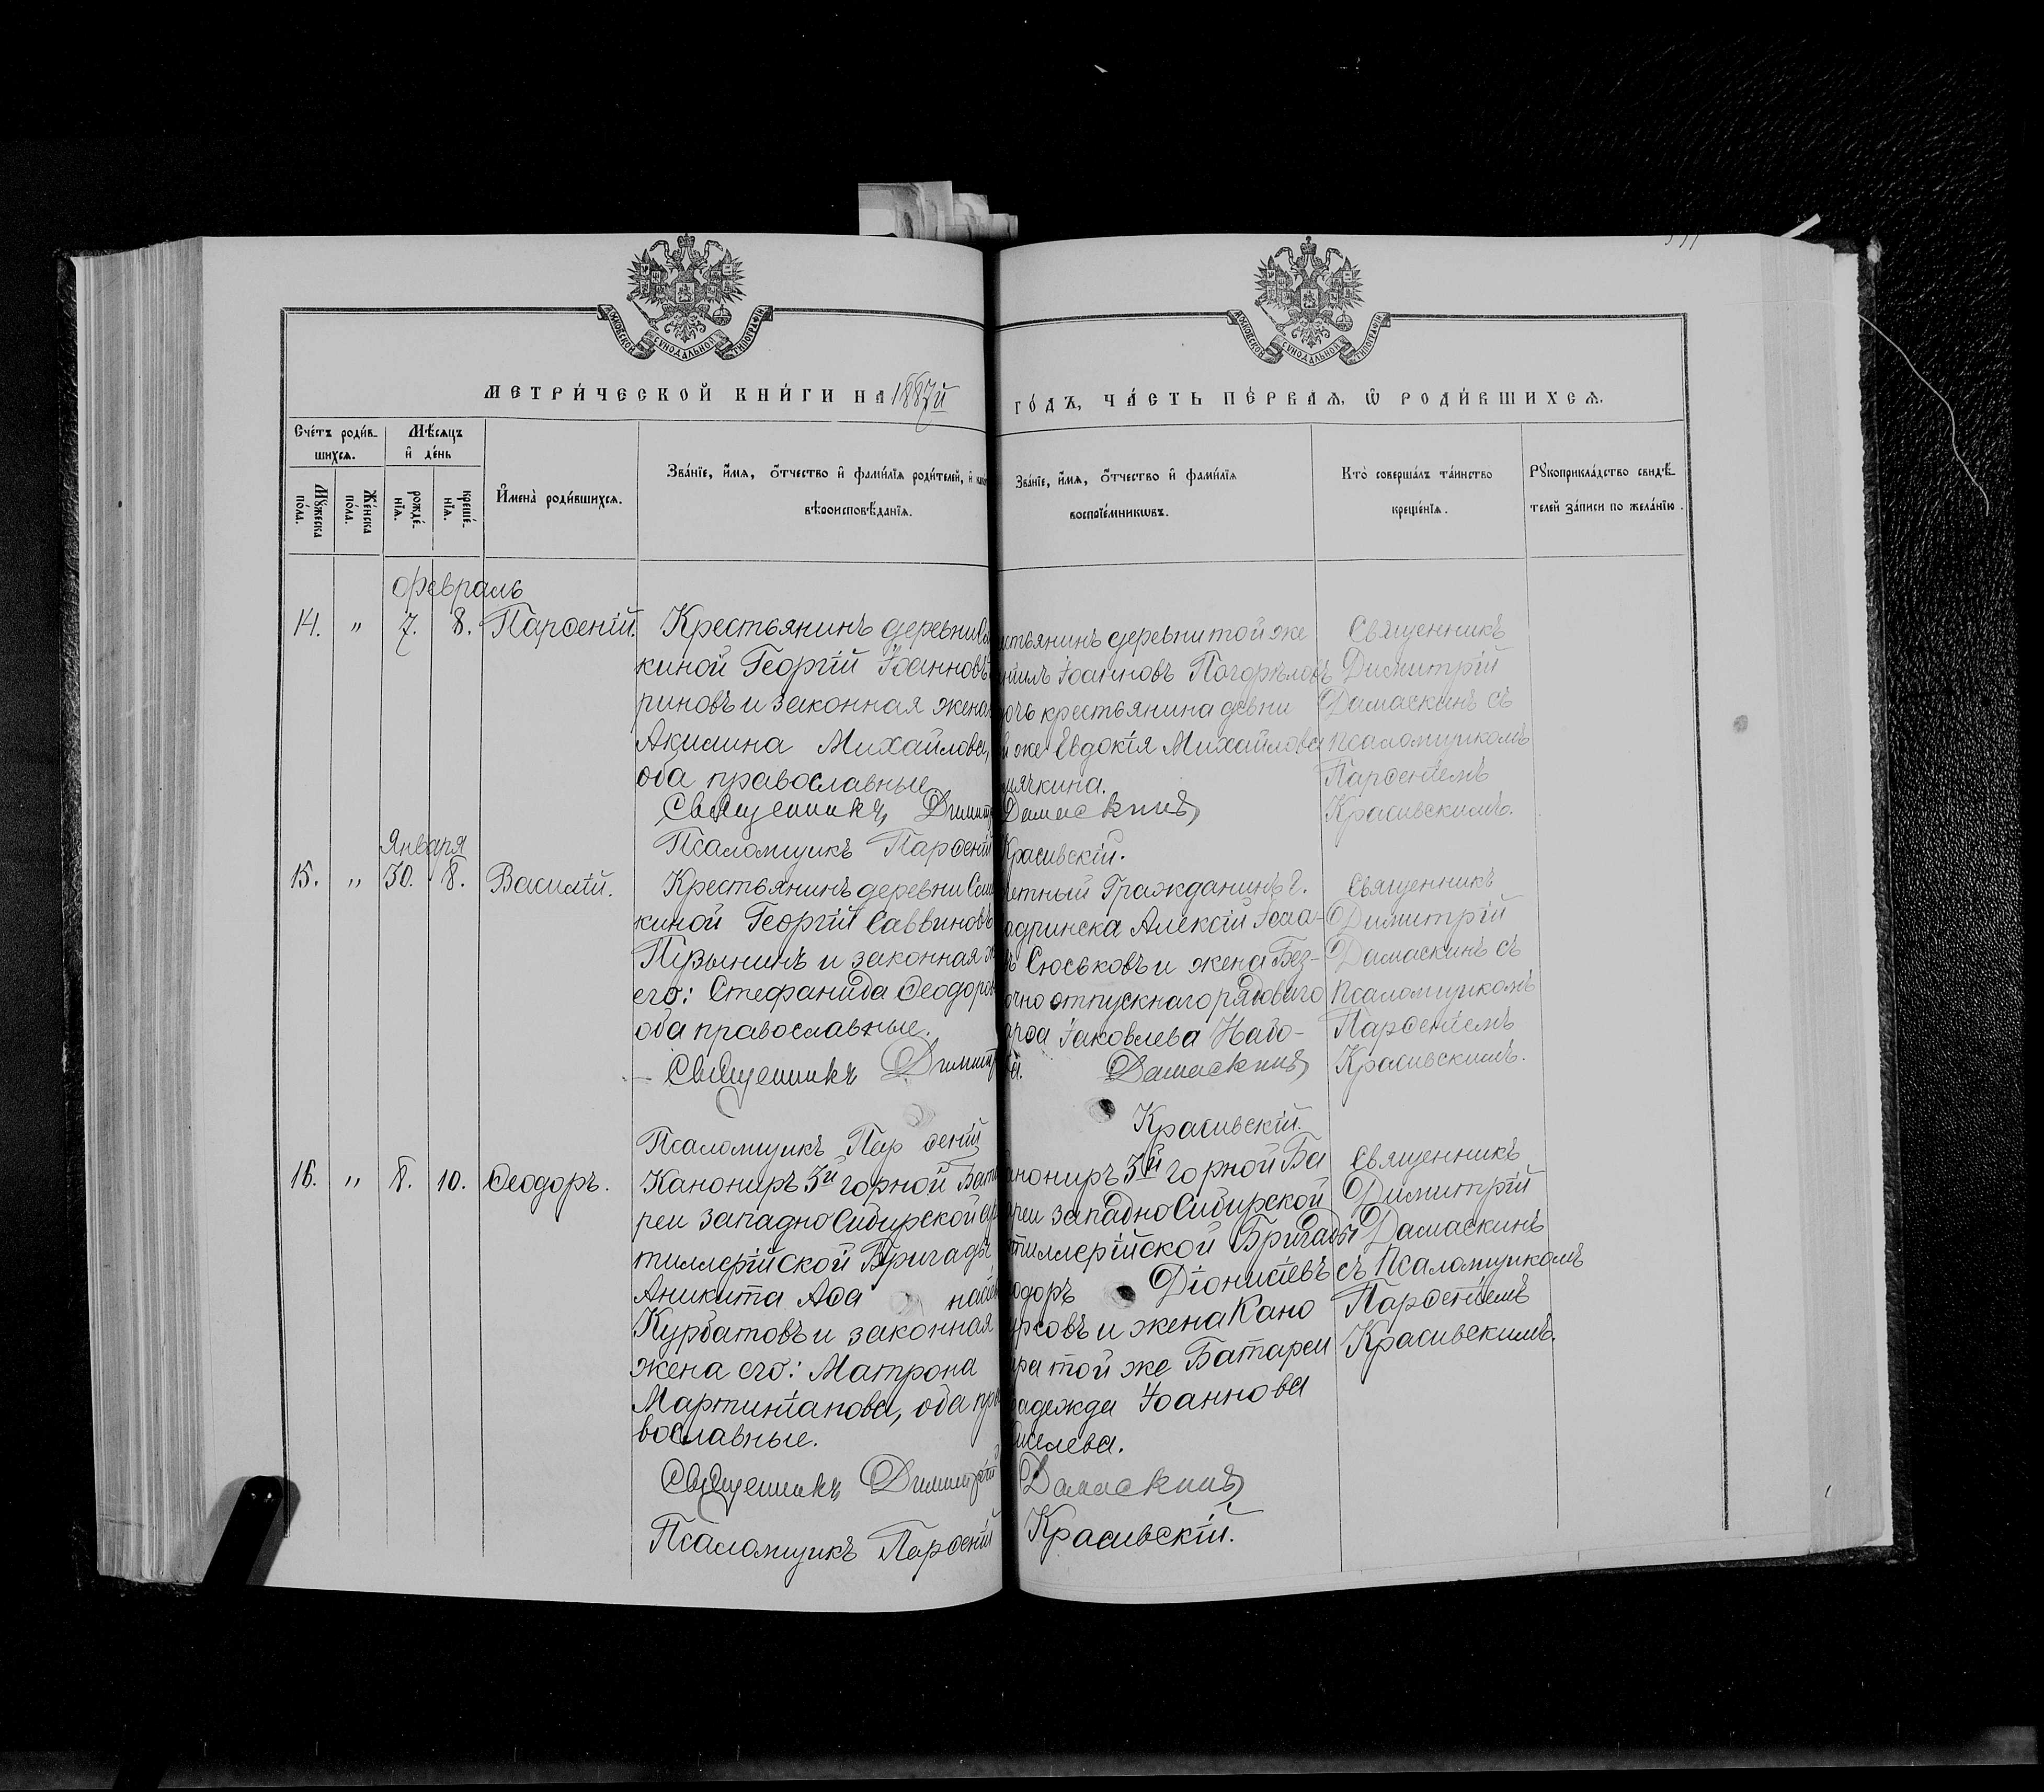 МОСКОВСКОЙ СѴНОДАЛЬНОЙ ТИПОГРАФІИ
МОСКОВСКОЙ СѴНОДАЛЬНОЙ ТИПОГРАФІИ
МЕТРИ́ЧЕСКОЙ КНИ́ГИ НА 1887й
ГО́ДЪ, ЧА́СТЬ ПЕ́РВАѦ, Ѡ РОДИ́ВШИХСѦ.
Сче́тъ роди́в-
шихсѧ.
Мѣ́сѧцъ
и҆ де́нь
Мꙋ́жеска
по́ла.
Же́нска
по́ла.
рожде́-
нїѧ.
креще́-
нїѧ.
И҆мена̀ роди́вшихсѧ.
Зва́нїе, и҆́мѧ, ѻ҆́тчество и҆ фами́лїѧ роди́телей, и҆
вѣроисповѣ́данїѧ.
Зва́нїе, и҆́мѧ, ѻ҆́тчество и҆ фами́лїѧ
воспрїе́мникѡвъ.
Кто̀ соверша́лъ та́инство
креще́нїѧ.
Рꙋкоприкла́дство свидѣ́-
телей за́писи по жела́нїю.
Февраль
14. " 7. 8. Парѳеній.
Крестьянинъ деревни
киной Георгій Іоанновъ
риновъ и законная жена
Акилина Михайлова,
оба православные
Священникъ Димитр
Псаломщикъ Парѳеній
стьянинъ деревни той же
Іоанновъ Погорѣловъ
дочь крестьянина девни
же Евдокія Михайлова
мячкина.
Дамаскинъ
Красивскій.
Священникъ
Димитрій
Дамаскинъ съ
псаломщикомъ
Парѳеніемъ
Красивскимъ.
Января
15. " 30. 8. Василій.
Крестьянинъ деревни Сем
киной Георгій Саввиновъ
Пузынинъ и законная ж
его: Стефанида Ѳеодоров
оба православные.
Священникъ Димитр
Псаломщикъ Парѳеній
четный Гражданинъ г.
адринска Алексій Исаа-
Сюськовъ и жена Без-
очно отпускнаго рядоваго
арѳа Іаковлева Набо-
Дамаскинъ
Красивскій.
Священникъ
Димитрій
Дамаскинъ съ
Псаломщикомъ
Парѳеніемъ
Красивскимъ.
16. " 8. 10. Ѳеодоръ.
Канониръ 3й горной Бата
реи Западно Сибирской ар
тиллерійской Бригады
Аникита Аѳа насіев
Курбатовъ и законная
жена его: Матрона
Мартиніанова, оба пра
вославные.
Священникъ Димитрій
Псаломщикъ Парѳеній
анониръ 3й горной Ба
реи Западно Сибирской
тиллерійской Бригады
одоръ Діонисіевъ
и жена Кано
ира той же Батареи
адежда Іоаннова
иселева.
Дамаскинъ
Красивскій.
Священникъ
Димитрій
Дамаскинъ
съ Псаломщикомъ
Парѳеніемъ
Красивскимъ.